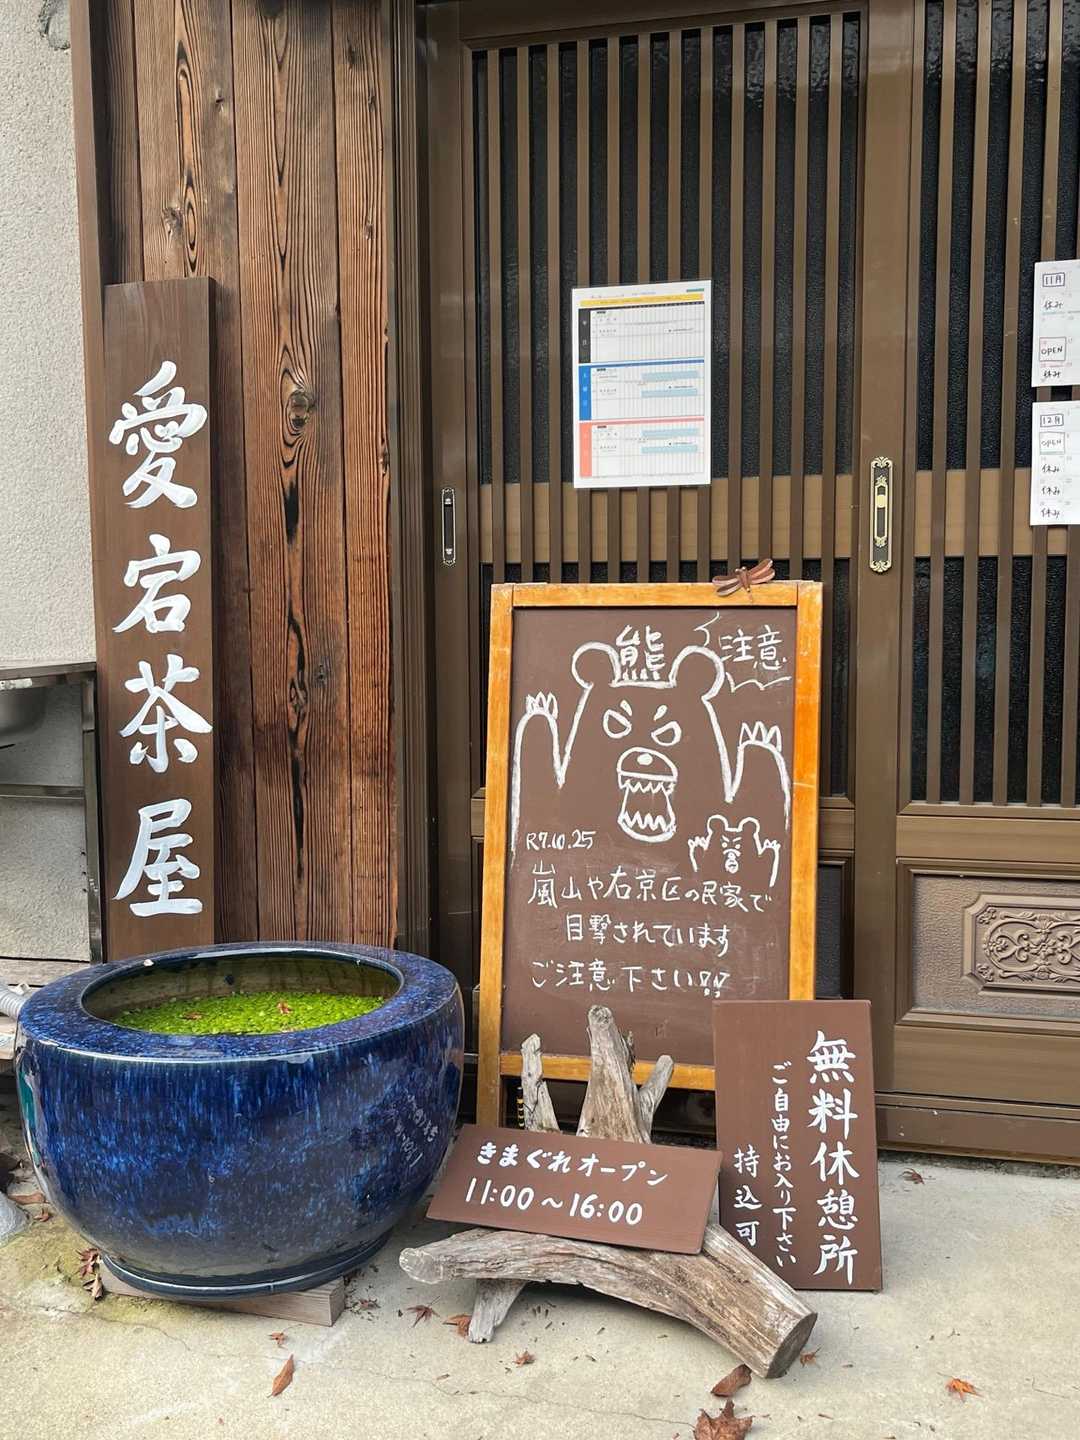 愛宕茶屋
熊
注意
R7.10.25
嵐山や右京区の民家で
目撃されています
ご注意下さい!!
きまぐれオープン
11:00～16:00
無料休憩所
ご自由にお入り下さい
持込可
11月
休み
OPEN
休み
12月
OPEN
休み
休み
休み